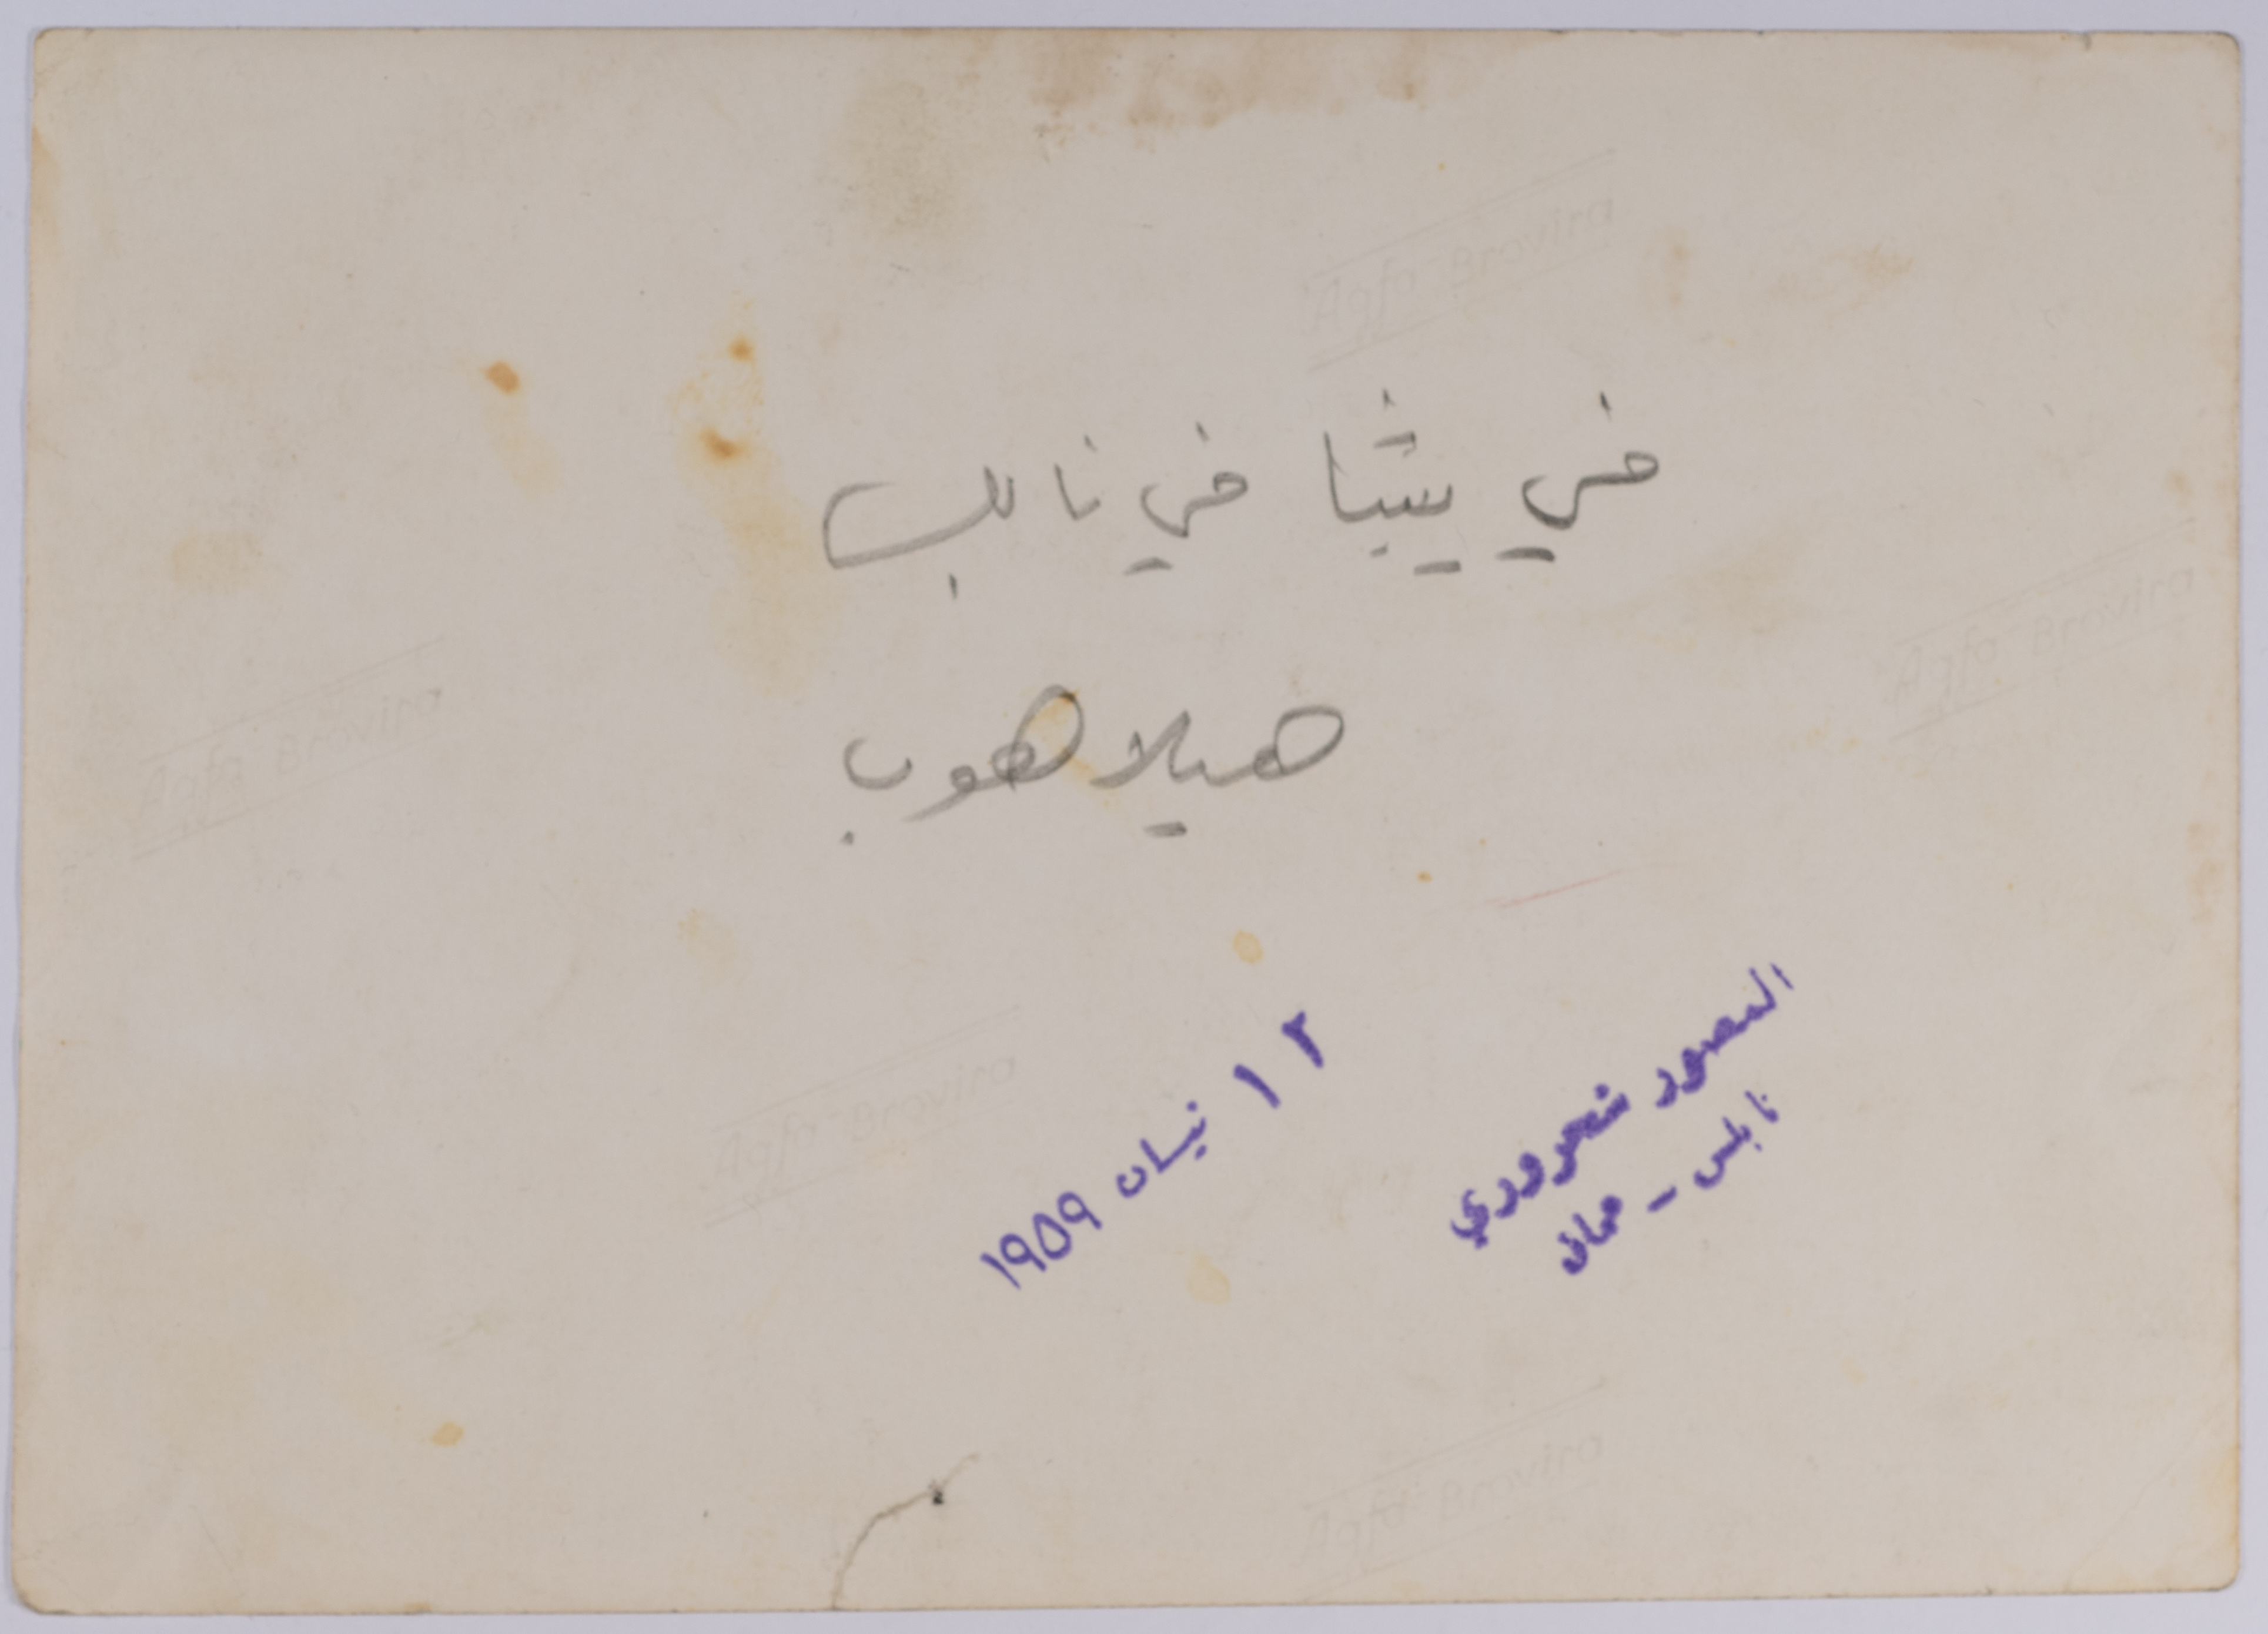 في بيتنا في نابلس
هيلا هوب
١٢ نيسان ١٩٥٩
المصور شحروري
نابلس - عمان
Agfa Brovira
Agfa Brovira
Agfa Brovira
Agfa Brovira
Agfa Brovira